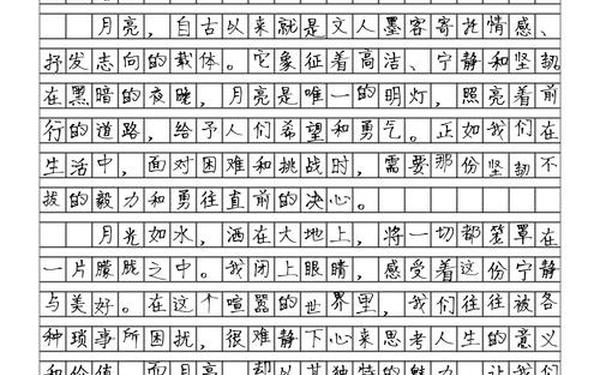 月亮，自古以来就是文人墨客寄托情感、
抒发志向的载体。它象征着高洁、宁静和坚韧
在黑暗的夜晚，月亮是唯一的明灯，照亮着前
行的道路，给予人们希望和勇气。正如我们在
生活中，面对困难和挑战时，需要那份坚韧不
拔的毅力和勇往直前的决心。
月光如水，洒在大地上，将一切都笼罩在
一片朦胧之中。我闭上眼睛，感受着这份宁静
与美好。在这个喧嚣的世界里，我们往往被各
种琐事所困扰，很难静下心来思考人生的意义
和价值。而月亮，却以其独特的魅力，让我们